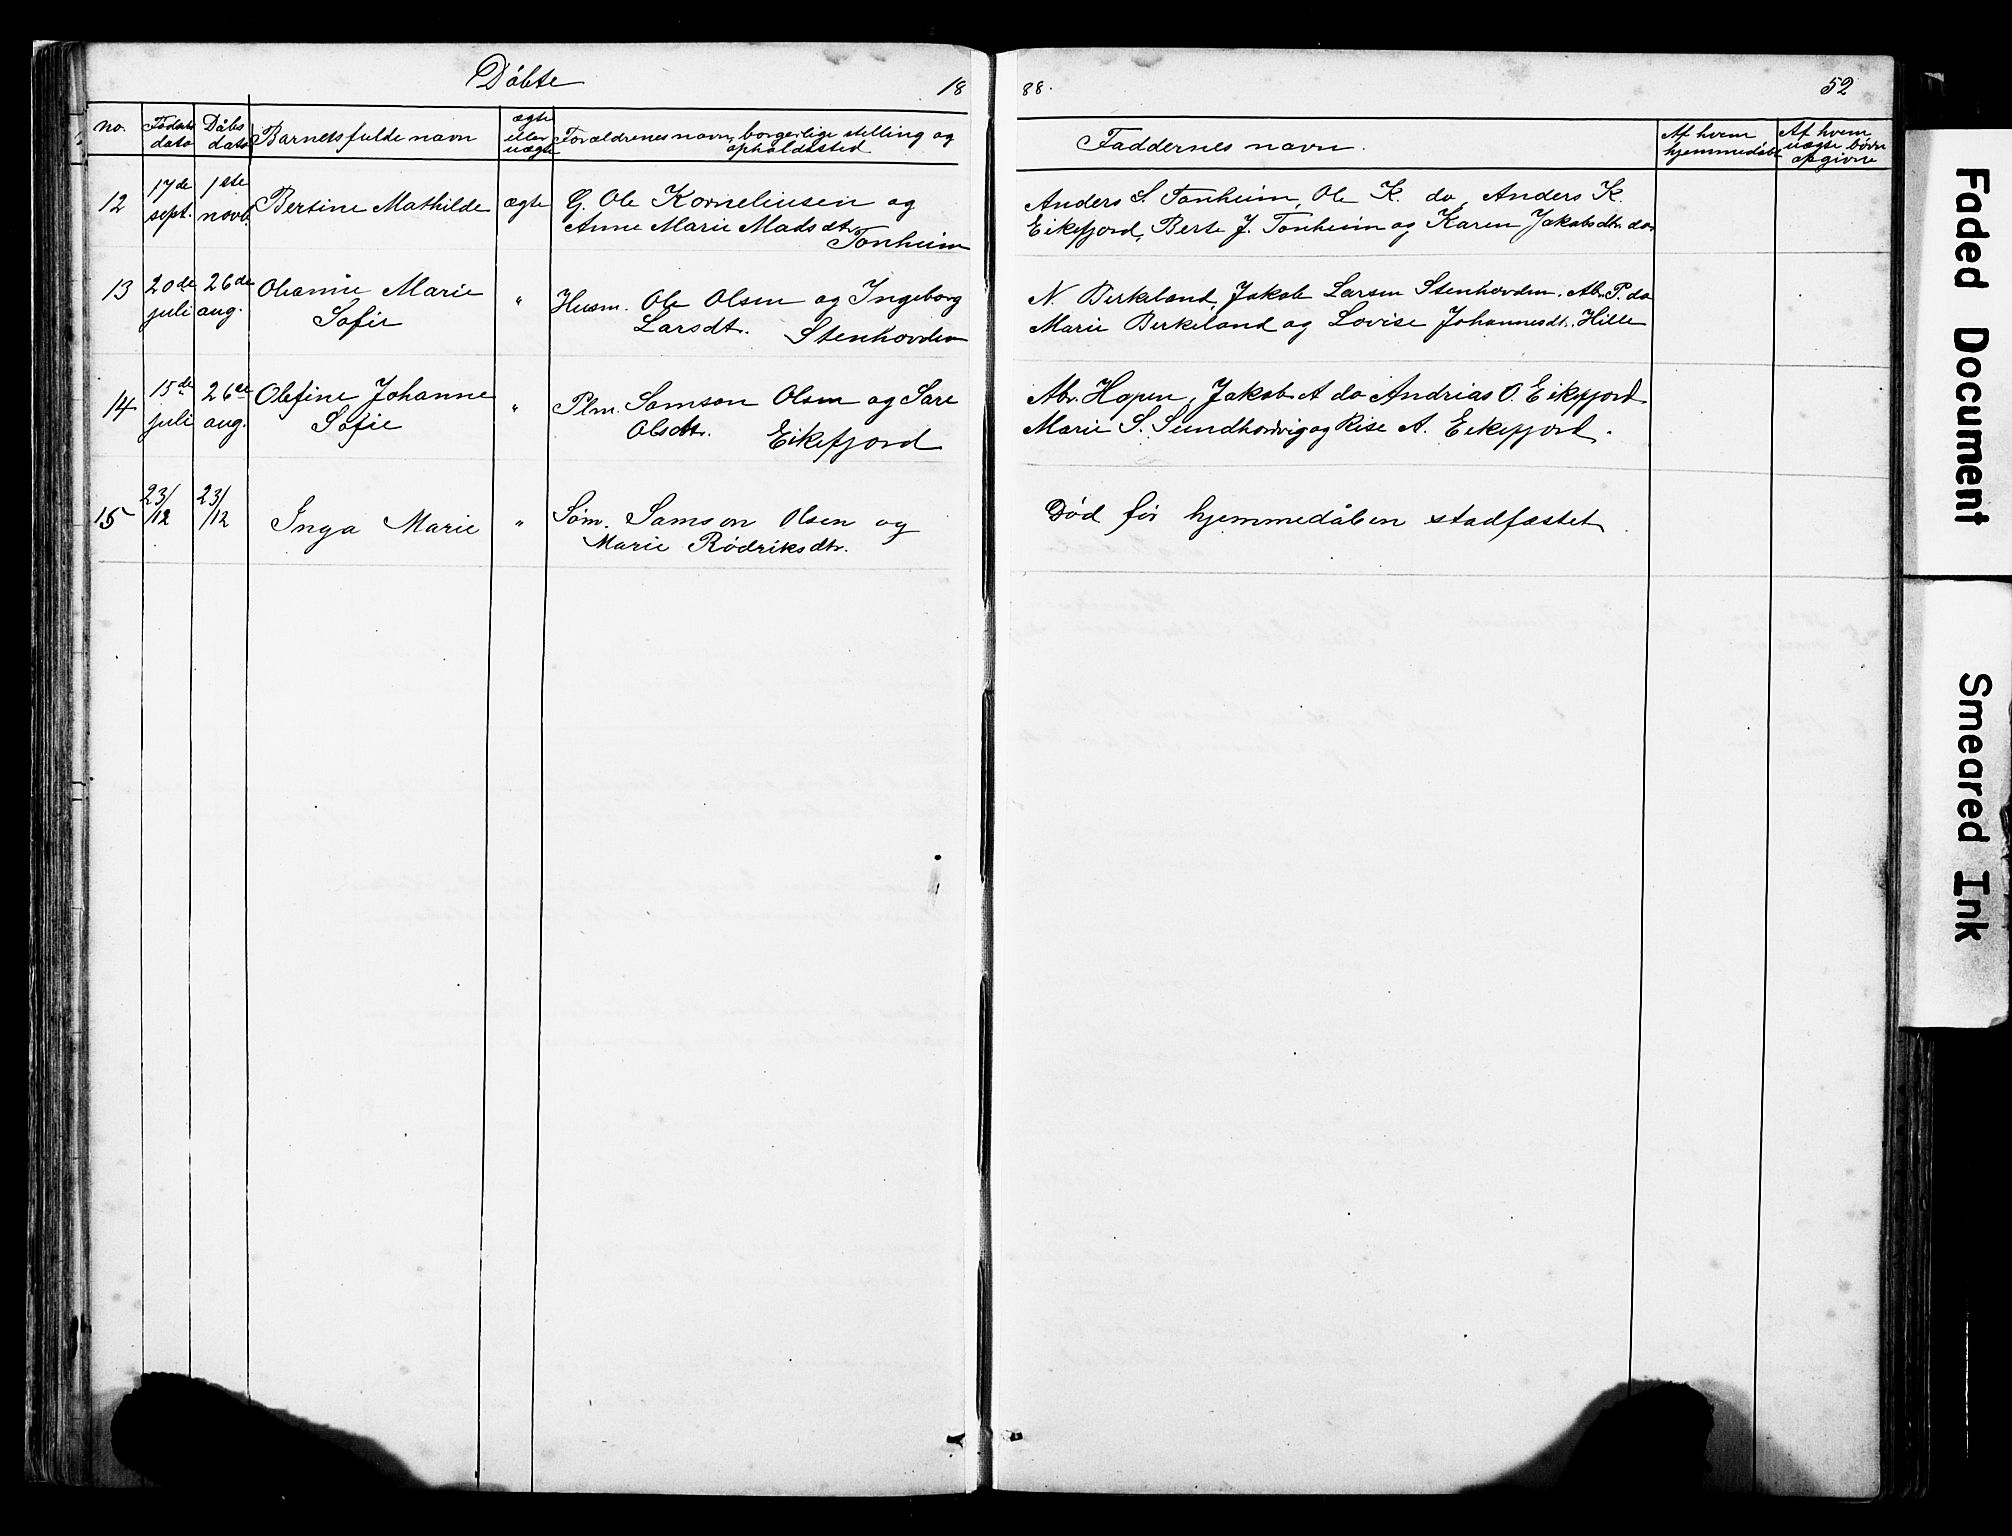 Döbte
18
88.
52
no.
Fødsels
dato
Dåbs
dato
Barnets fulde navn
ægte
eller
uægte
Forældrenes navn, borgerlige stilling og
opholdssted
Faddernes navn.
Af hvem
hjemmedöbt
Af hvem
uægte börn
opgivne
12
17de
sept.
1ste
novb.
Bertine Mathilde
ægte
G. Ole Korneliusen og
Anne Marie Madsdtr.
Tonheim
Anders S. Tonheim, Ole K. do, Anders K.
Eikefjord, Berte J. Tonheim og Karen Jakobsdtr. do
13
20de
juli
26de
aug.
Oleanne Marie
Sofie
"
Husm. Ole Olsen og Ingeborg
Larsdt.
Stenhovden
N. Birkeland, Jakob Larsen Stenhovden. Abr. P. do
Marie Birkeland og Lovise Johannesdt. Hille
14
15de
juli
26de
aug.
Olefine Johanne
Sofie
"
Plm. Samson Olsen og Sare
Olsdtr.
Eikefjord
Abr. Hopen, Jakob A do Andrias O. Eikefjord
Marie S. Sundhordvig og Rise A. Eikefjord.
15
23/
/12
23/
/12
Inga Marie
"
Søm. Samson Olsen og
Marie Rødriksdtr.
Död för hjemmedåben stadfæstet.
Faded Document
Smeared Ink